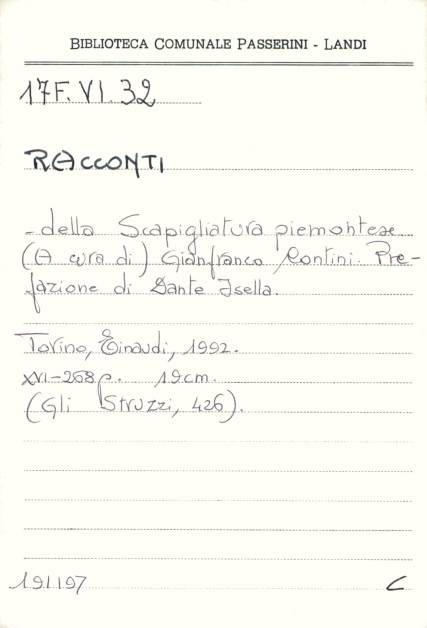 BIBLIOTECA COMUNALE PASSERINI - LANDI
17F. VI. 32
RACCONTI
- della Scapigliatura piemontese
(A cura di) Gianfranco Contini. Pre-
fazione di Dante Isella.
Torino, Einaudi, 1992.
XVI-268 p. 19 cm.
(Gli Struzzi, 426).
191197 C